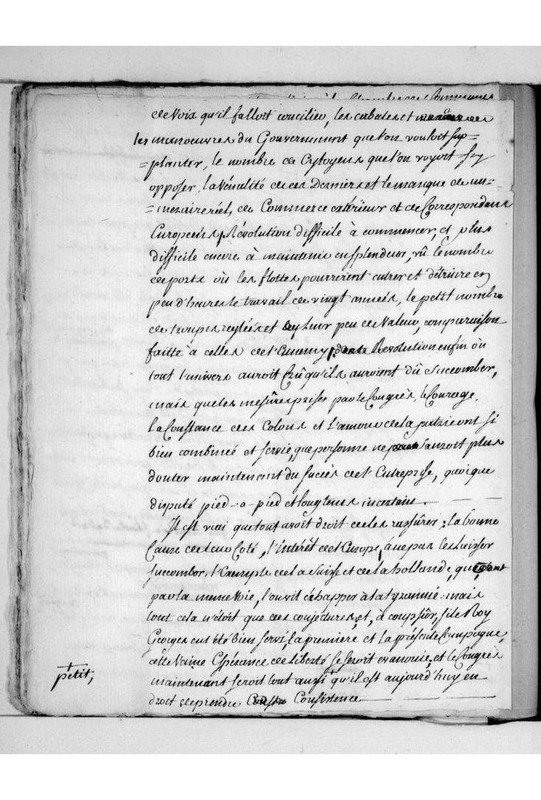 de Voix qu'il falloit concilier, les cabales et
les manoeuvres du Gouvernement que l'on vouloit sup-
=planter, le nombre de Cytoyens que l'on voyoit s'y
opposer, la Vénalité de ces Derniers et le manque de nu-
=meraire réel, de Commerce extérieur et de Correspondans
Européens, Révolution difficile à commencer, et plus
difficile encore à maintenir en splendeur, vû le nombre
de ports où les flottes pourroient entrer et détruire en
peu d'heures le travail de vingt années, le petit nombre
de troupes reglées et leur peu de Valeur, comparaison
faitte à celles de l'Ennemy, Revolution enfin où
tout l'univers auroit Crû qu'ils auroient dû Succomber,
mais que les mesûres prises par le Congrès, le Courage,
la Constance des Colons et l'amour de la patrie ont si
bien combinée et servie, que personne ne sauroit plus
douter maintenant du succès de l'Entreprise, quoique
disputé pied-a-pied et longtems incertain.
Il est vrai que tout avoit droit de les rassûrer; la bonne
Cause de leur Coté, l'intérêt de l'Europe, à ne pas les laisser
succomber, l'Exemple de la Suisse et de la hollande, qui
par la même Voie, l'ont vit échapper à la tyrannie: mais
tout cela n'étoit que des conjectures, et, à coup sûr, si le Roy
Georges eut été bien servi, la première, et la présente Campagne,
cette Vaine Espérance de Liberté se seroit evanouie, et le Congrès
maintenant seroit tout aussi petit, qu'il est aujourd'huy en
droit de prendre Consistence